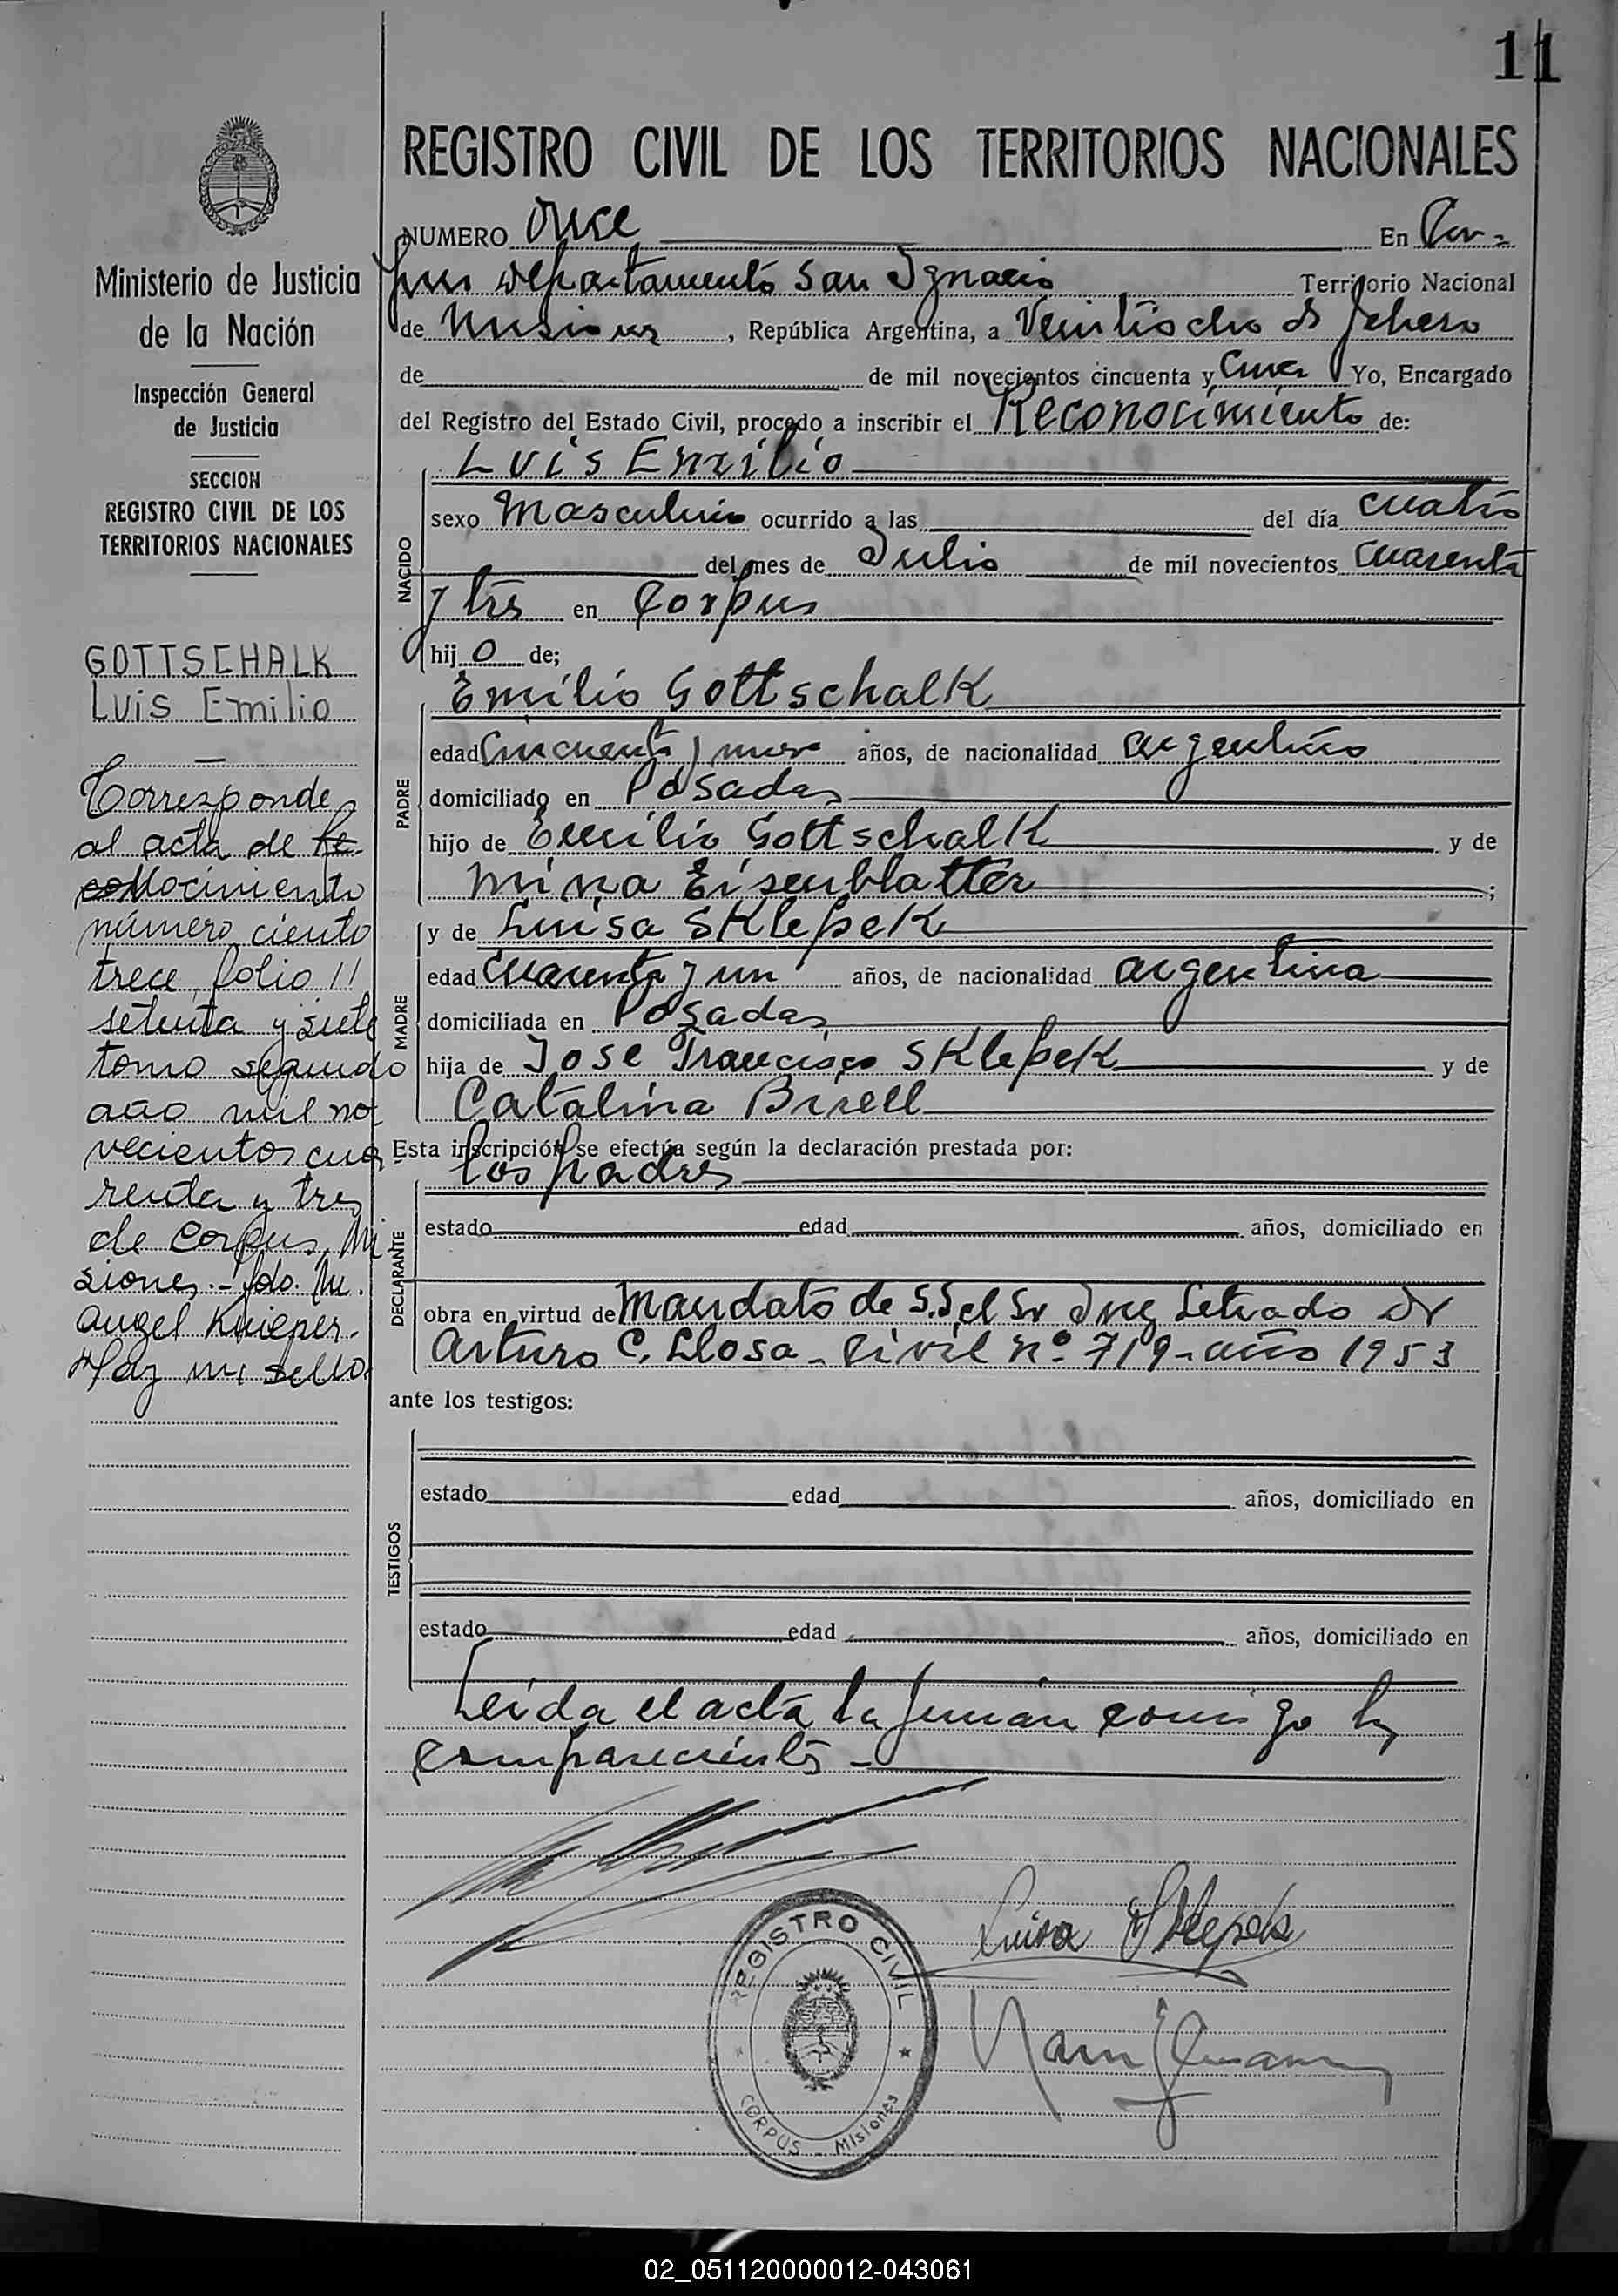 11
REGISTRO CIVIL DE LOS TERRITORIOS NACIONALES
NUMERO Once En Cor-
pus departamento San Ignacio Territorio Nacional
de Misiones, República Argentina, a Veintiocho de Febrero
de de mil novecientos cincuenta y Cinco Yo, Encargado
del Registro del Estado Civil, procedo a inscribir el Reconocimiento de:
Luis Emilio
sexo Masculino ocurrido a las del día cuatro
del mes de Julio de mil novecientos cuarenta
y tres en Corpus
hijo de;
NACIDO
Emilio Gottschalk
edad Cincuenta y nueve años, de nacionalidad argentino
domiciliado en Posadas
hijo de Emilio Gottschalk y de
Mina Eisenblatter;
PADRE
y de Luisa Sklepek
edad Cuarenta y un años, de nacionalidad argentina
domiciliada en Posadas
hija de Jose Francisco Sklepek y de
Catalina
MADRE
Esta inscripción se efectúa según la declaración prestada por:
los padres
estado edad años, domiciliado en
obra en virtud de Mandato de S.S el Sr Juez Letrado Dr
Arturo C. Llosa - Civil nº 719 - año 1953
DECLARANTE
ante los testigos:
estado edad años, domiciliado en
estado edad años, domiciliado en
TESTIGOS
Leida el acta la firman conmigo los
comparecientes -
Luisa Sklepek
REGISTRO CIVIL
CORPUS - Misiones
Ministerio de Justicia
de la Nación
Inspección General
de Justicia
SECCION
REGISTRO CIVIL DE LOS
TERRITORIOS NACIONALES
GOTTSCHALK
Luis Emilio
Corresponde
al acta de
nocimiento
número ciento
trece, folio
setenta y siete
tomo segundo
año mil no
vecientos cua
renta y tres
de Corpus, Mi
siones.- fdo. M.
Angel Knieper.
Hay un sello
02_051120000012-043061